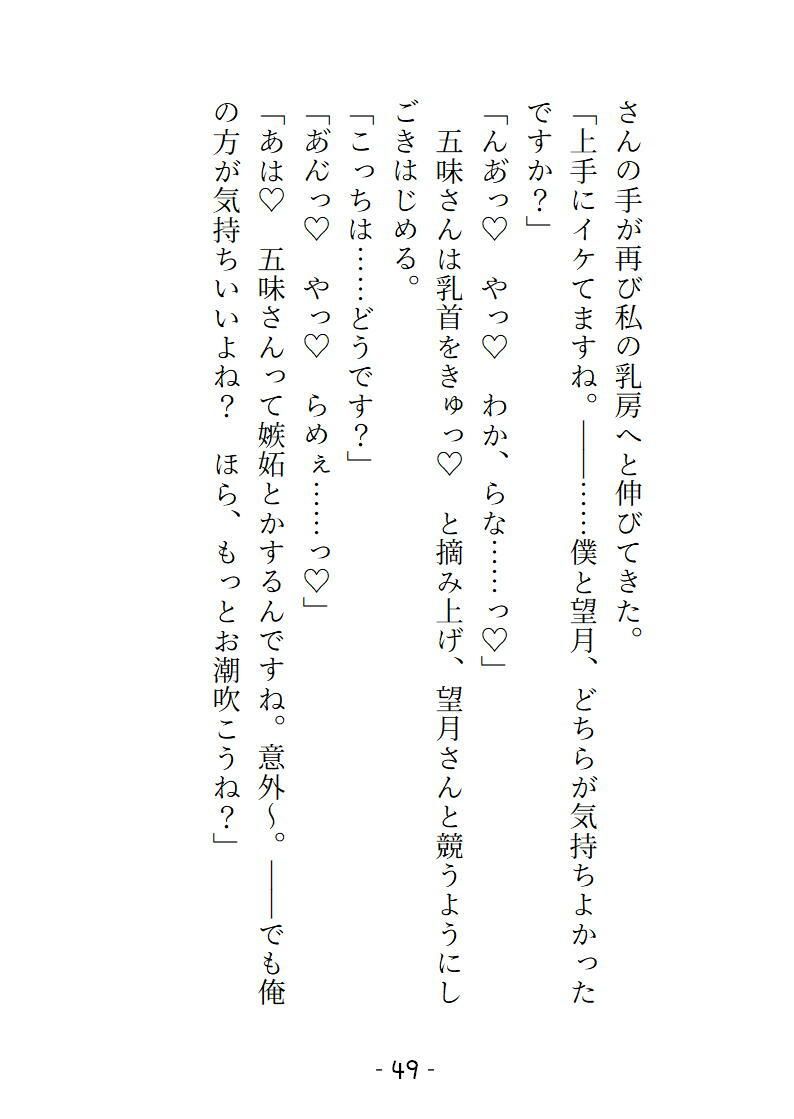 さんの手が再び私の乳房へと伸びてきた。
「上手にイケてますね。――……僕と望月、どちらが気持ちよかった
ですか？」
「んあ゙っ♡　やっ♡　わか、らな……っ♡」
　五味さんは乳首をきゅっ♡　と摘み上げ、望月さんと競うようにし
ごきはじめる。
「こっちは……どうです？」
「あ゙んっ♡　やっ♡　らめぇ……っ♡」
「あは♡　五味さんって嫉妬とかするんですね。意外〜。――でも俺
の方が気持ちいいよね？　ほら、もっとお潮吹こうね？」
- 49 -